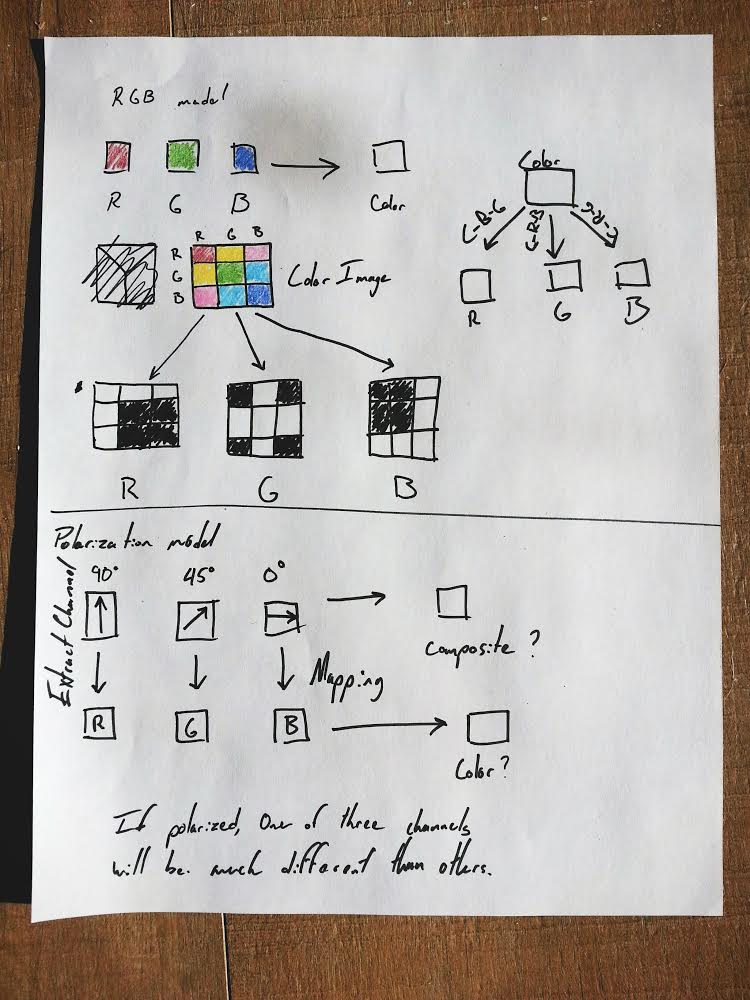 RGB model
R G B Color
Color
C-B-G C-R-B C-R-G
R G B
R G B
R
G
B
Color Image
R G B
Polarization model
Extract Channel
90° 45° 0°
Composite ?
Mapping
R G B
Color ?
If polarized, One of three channels
will be much different than others.